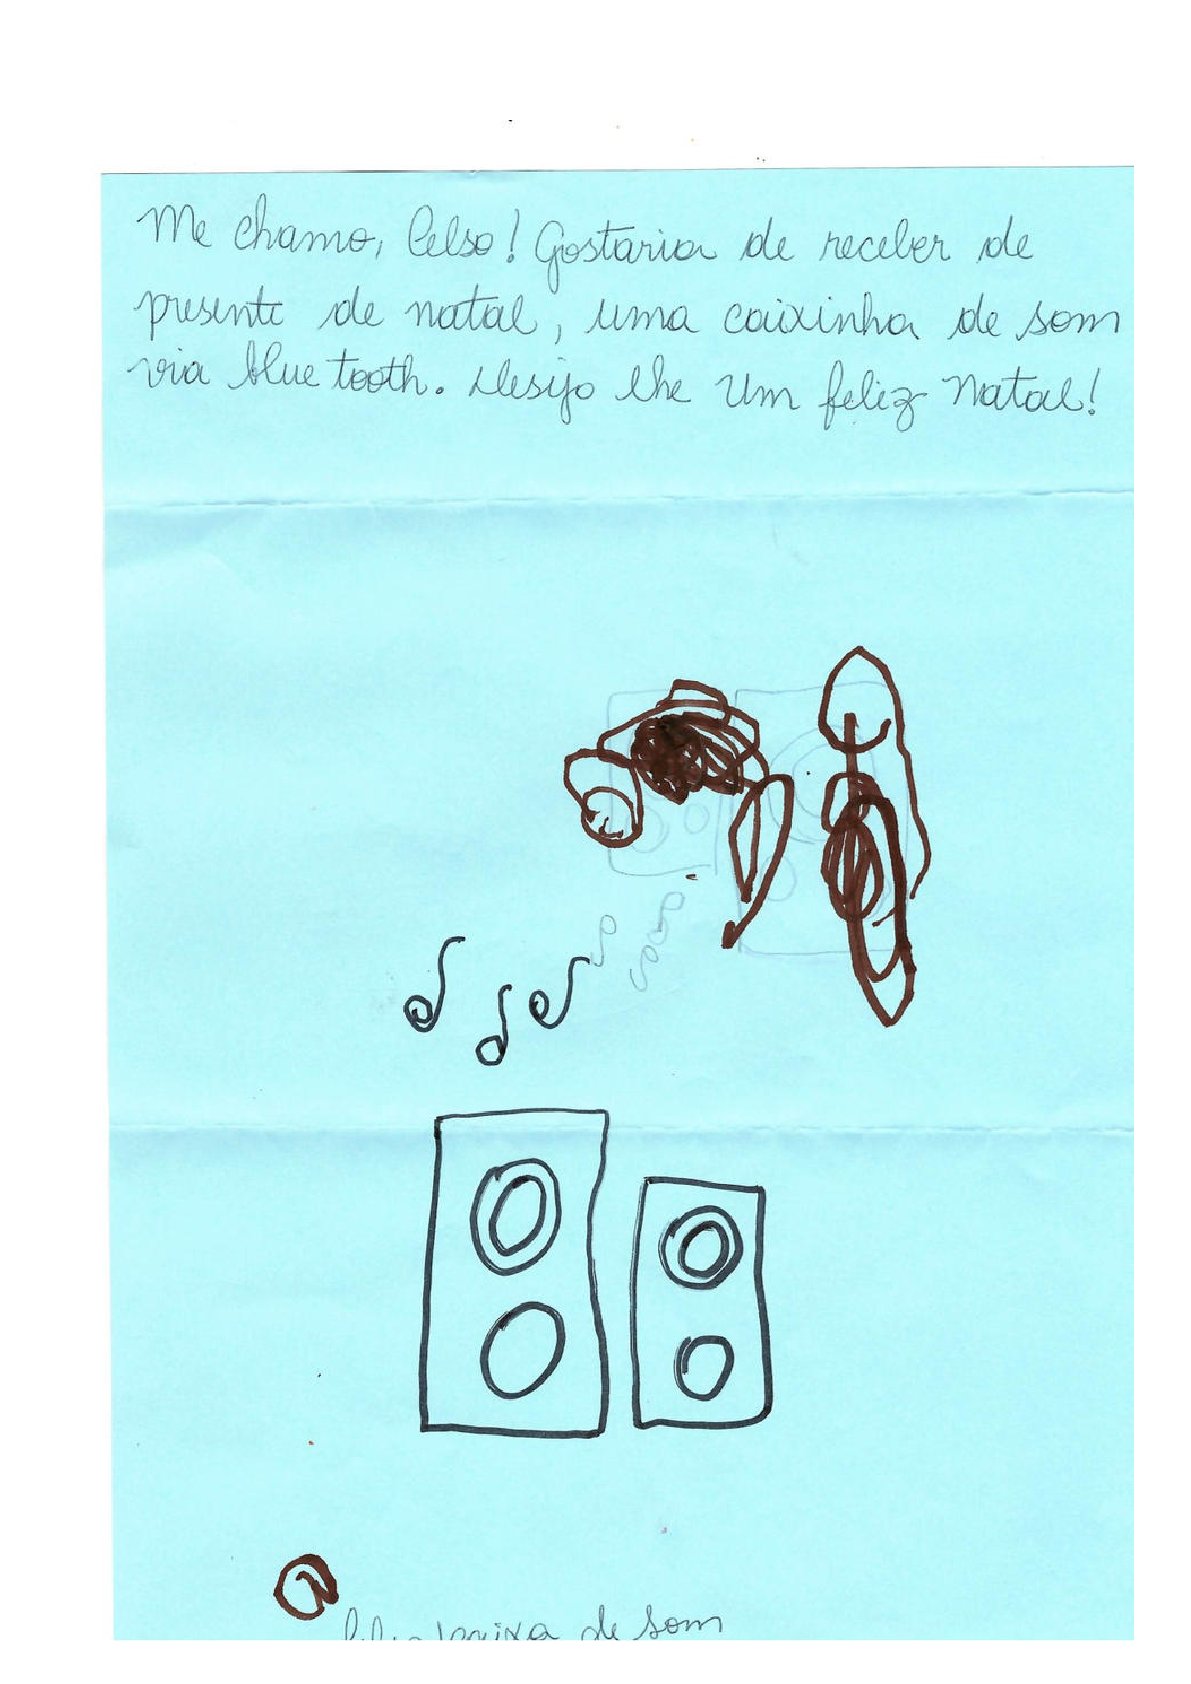 Me chamo, Celso! Gostaria de receber de
presente de natal, uma caixinha de som
via blue tooth. Desijo lhe um feliz Natal!
caixa de som